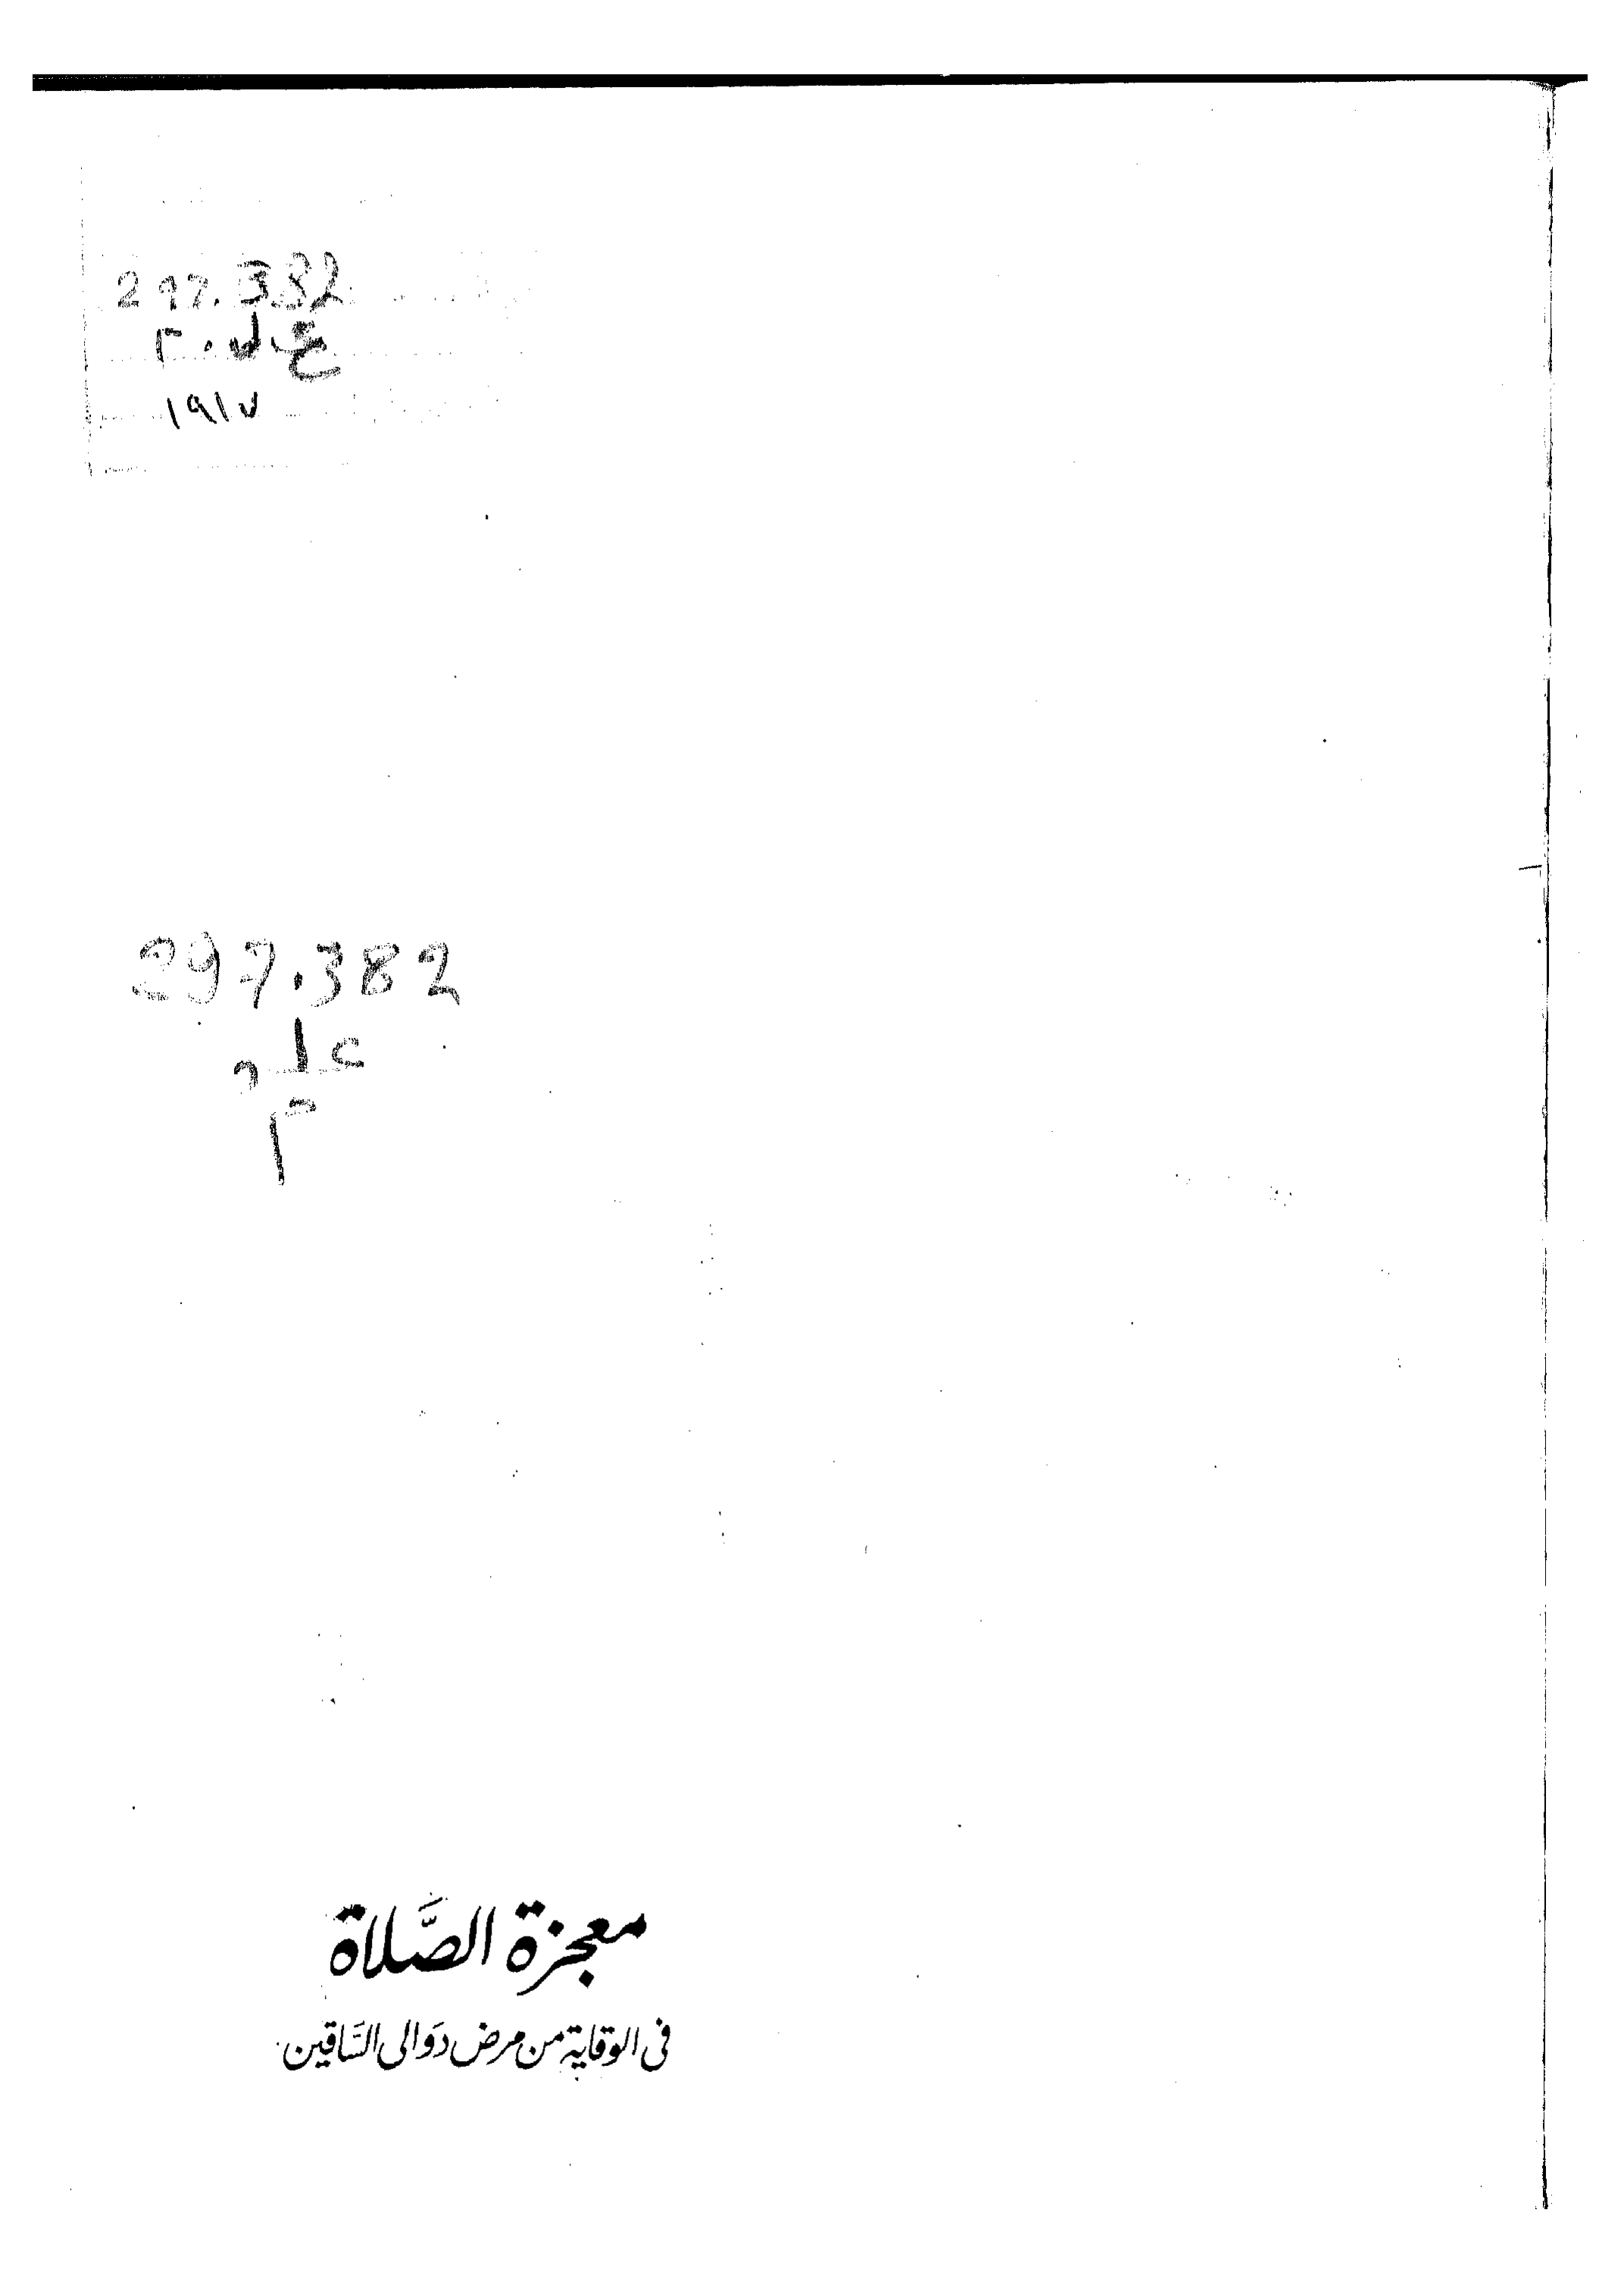 297.382
ع ل . م
١٩١٧
297.382
معجزة الصَّلاة
فى الوقاية من مرض دَوَالى السَّاقين